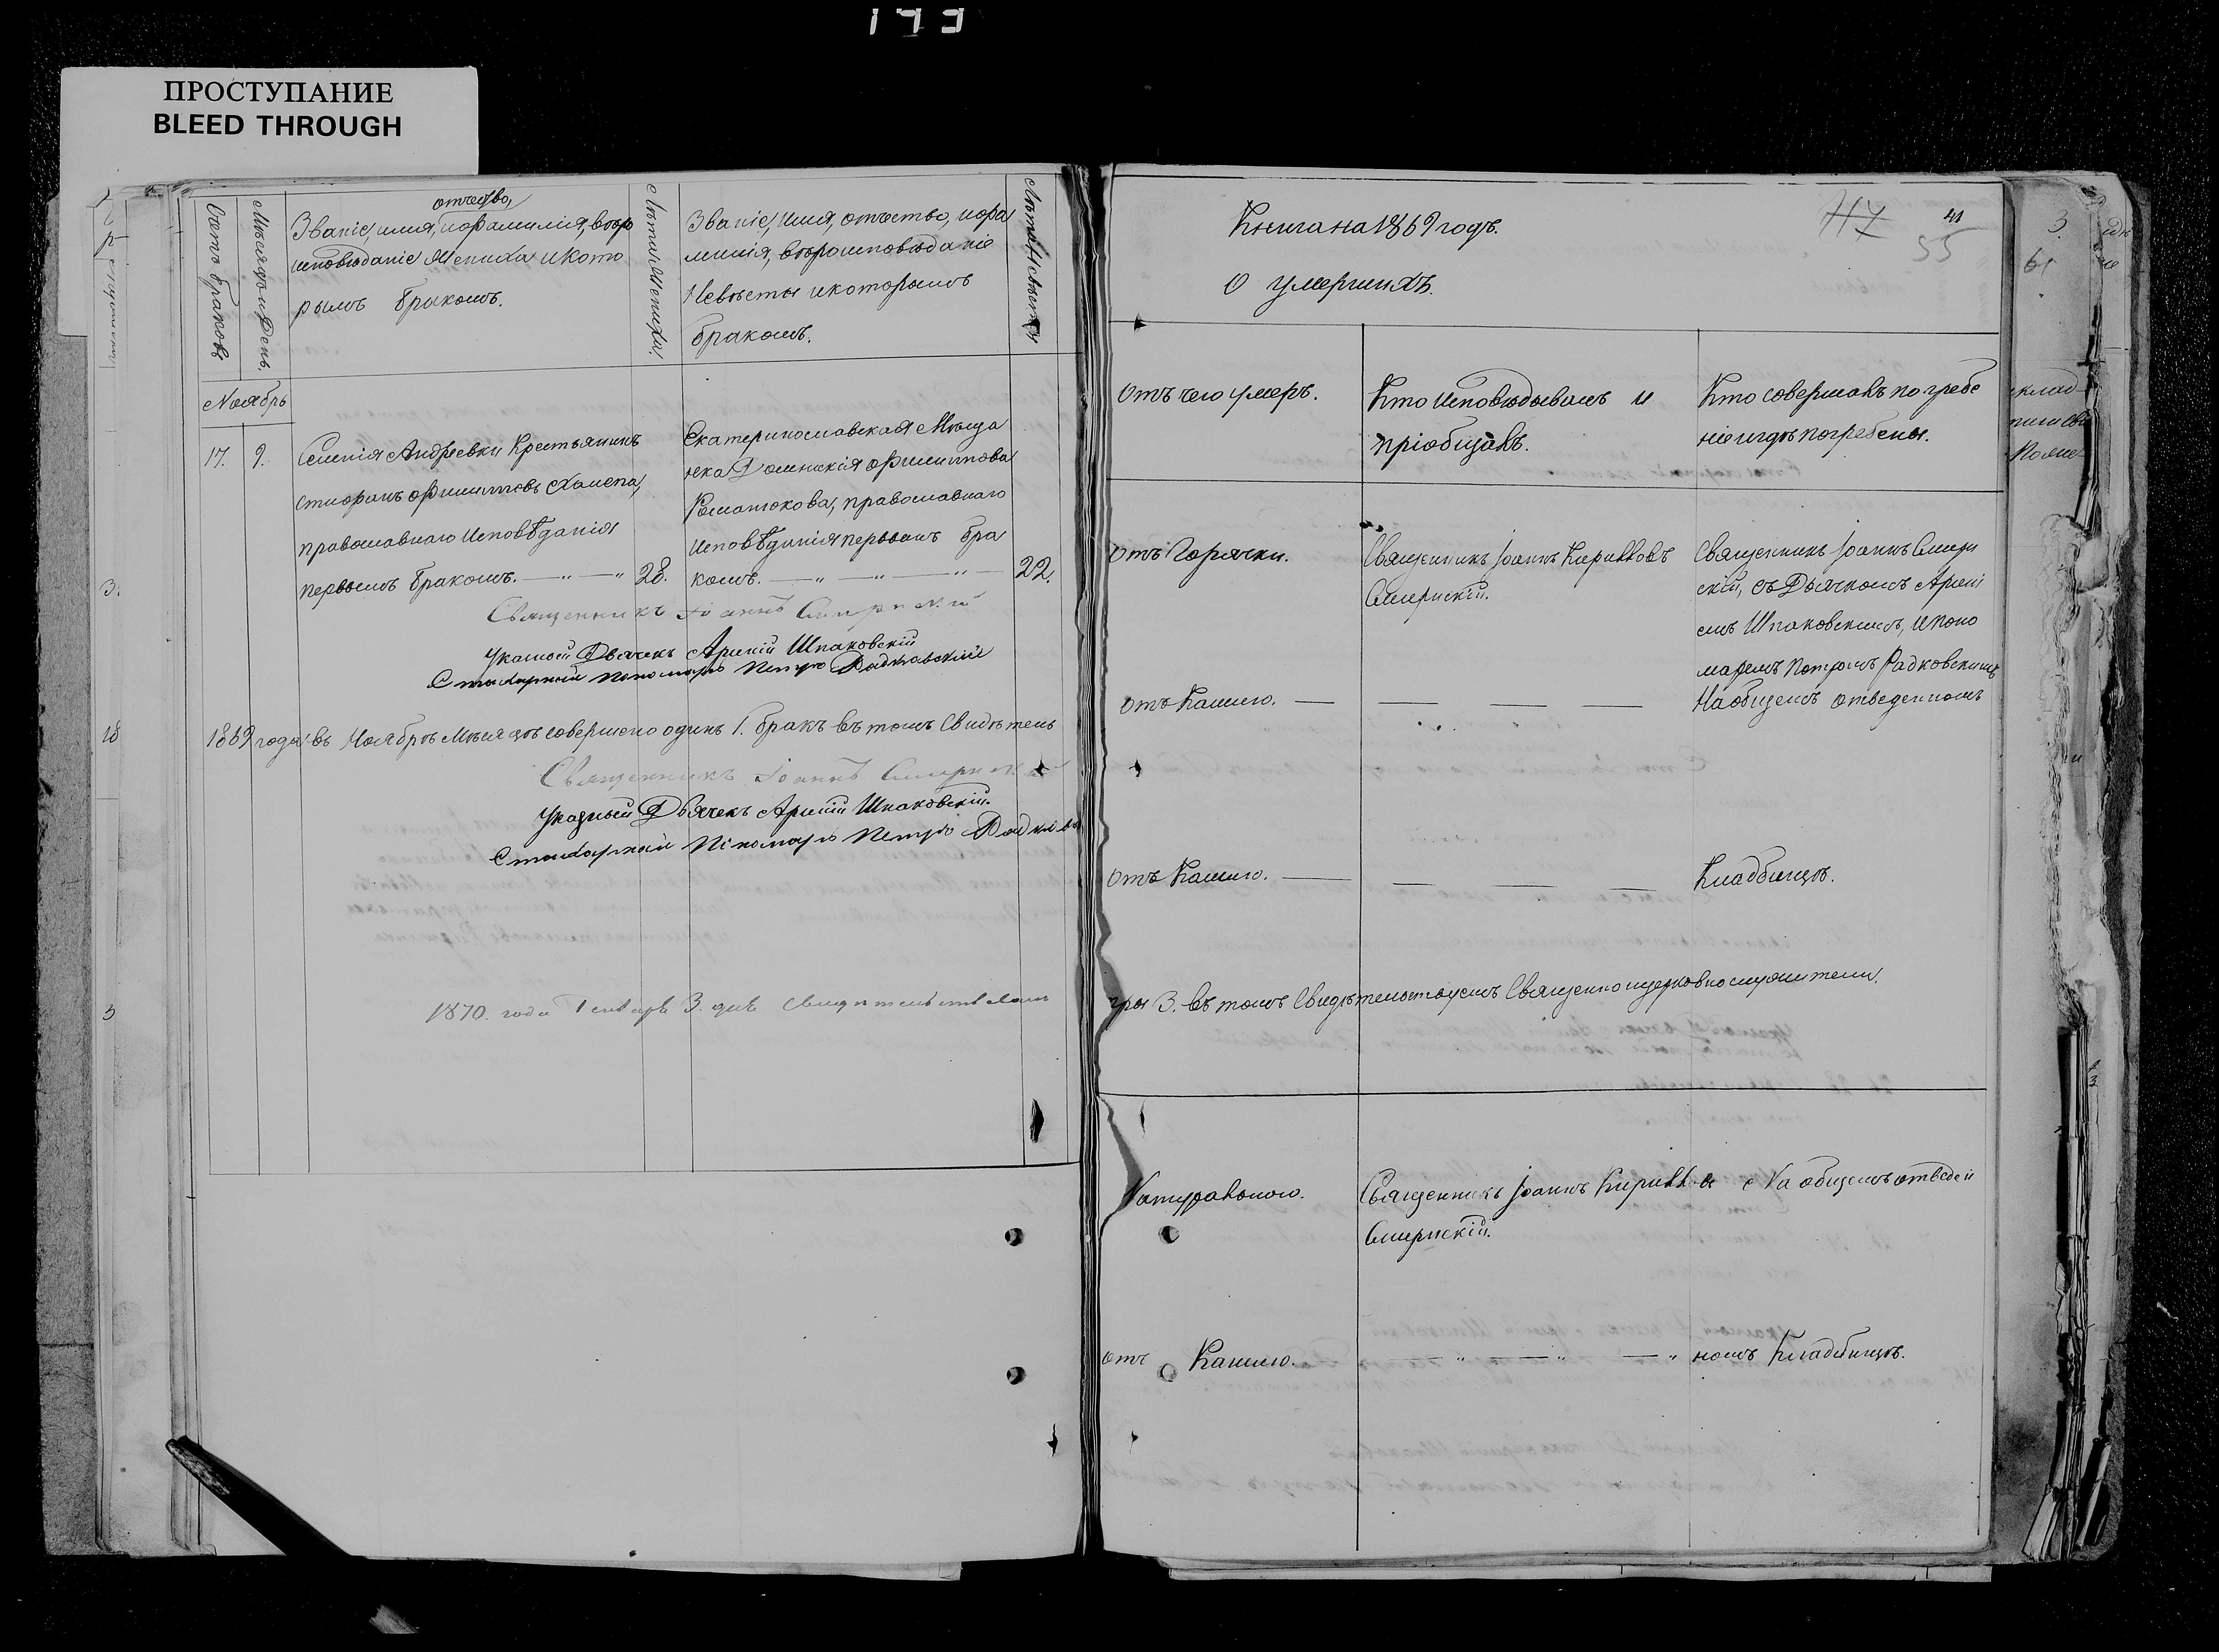 ПРОСТУПАНИЕ
BLEED THROUGH
Счетъ браковъ
Мѣсяцъ и день.
отчество,
Званіе, имя, и фамилія, вѣро
исповѣданіе Жениха и кото
рымъ бракомъ.
Лѣта Жениха.
Званіе, имя, отчество, и фа
милія, вѣроисповѣданіе
Невѣсты и которымъ
бракомъ.
Лѣта Невѣсты
Ноябрь
17. 9.
Селенія Андреевки Крестьянинъ
Филипповъ
православнаго Исповѣданія
первымъ бракомъ. — " — " 28.
Екатеринославская Мѣща
нка Домникія Филиппова
Романюкова, православнаго
Исповѣданія первымъ бра
комъ. — " — " — " — 22.
Священникъ Іоаннъ
Указной Дьячекъ Арсеній Шпаковскій
Стихарный Пономарь Петръ Радковскій
1869 года въ Ноябрѣ Мѣсяцѣ совершено одинъ 1. бракъ въ томъ Свидѣтель
Священникъ Іоаннъ
Указный Дьячекъ Арсеній Шпаковскій.
Стихарный Пономарь Петръ Радков
1870. года Генваря 3. дня свидѣтельствовалъ
Книга на 1869 годъ.
О умершихъ.
117 41
55
Отъ чего умеръ.
Кто Исповѣдывалъ и
пріобщалъ.
Кто совершалъ погребе
ніе и гдѣ погребены.
Отъ Горячки.
Священникъ Іоаннъ Кирилловъ
Смирнскій.
Священникъ Іоаннъ Смирн
скій, съ Дьячкомъ Арсені
емъ Шпаковскимъ, и Поно
маремъ Петромъ Радковскимъ
На общемъ отведенномъ
Отъ Кашлю. — — — —
Отъ Кашлю. — — — —
Кладбищѣ.
3. въ томъ Свидѣтельствуемъ Священноцерковнослужители.
Натуральною.
Священникъ Іоаннъ Кирилловъ
Смирнскій.
На общемъ отведен
Отъ Кашлю. — " — " — "
номъ Кладбищѣ.